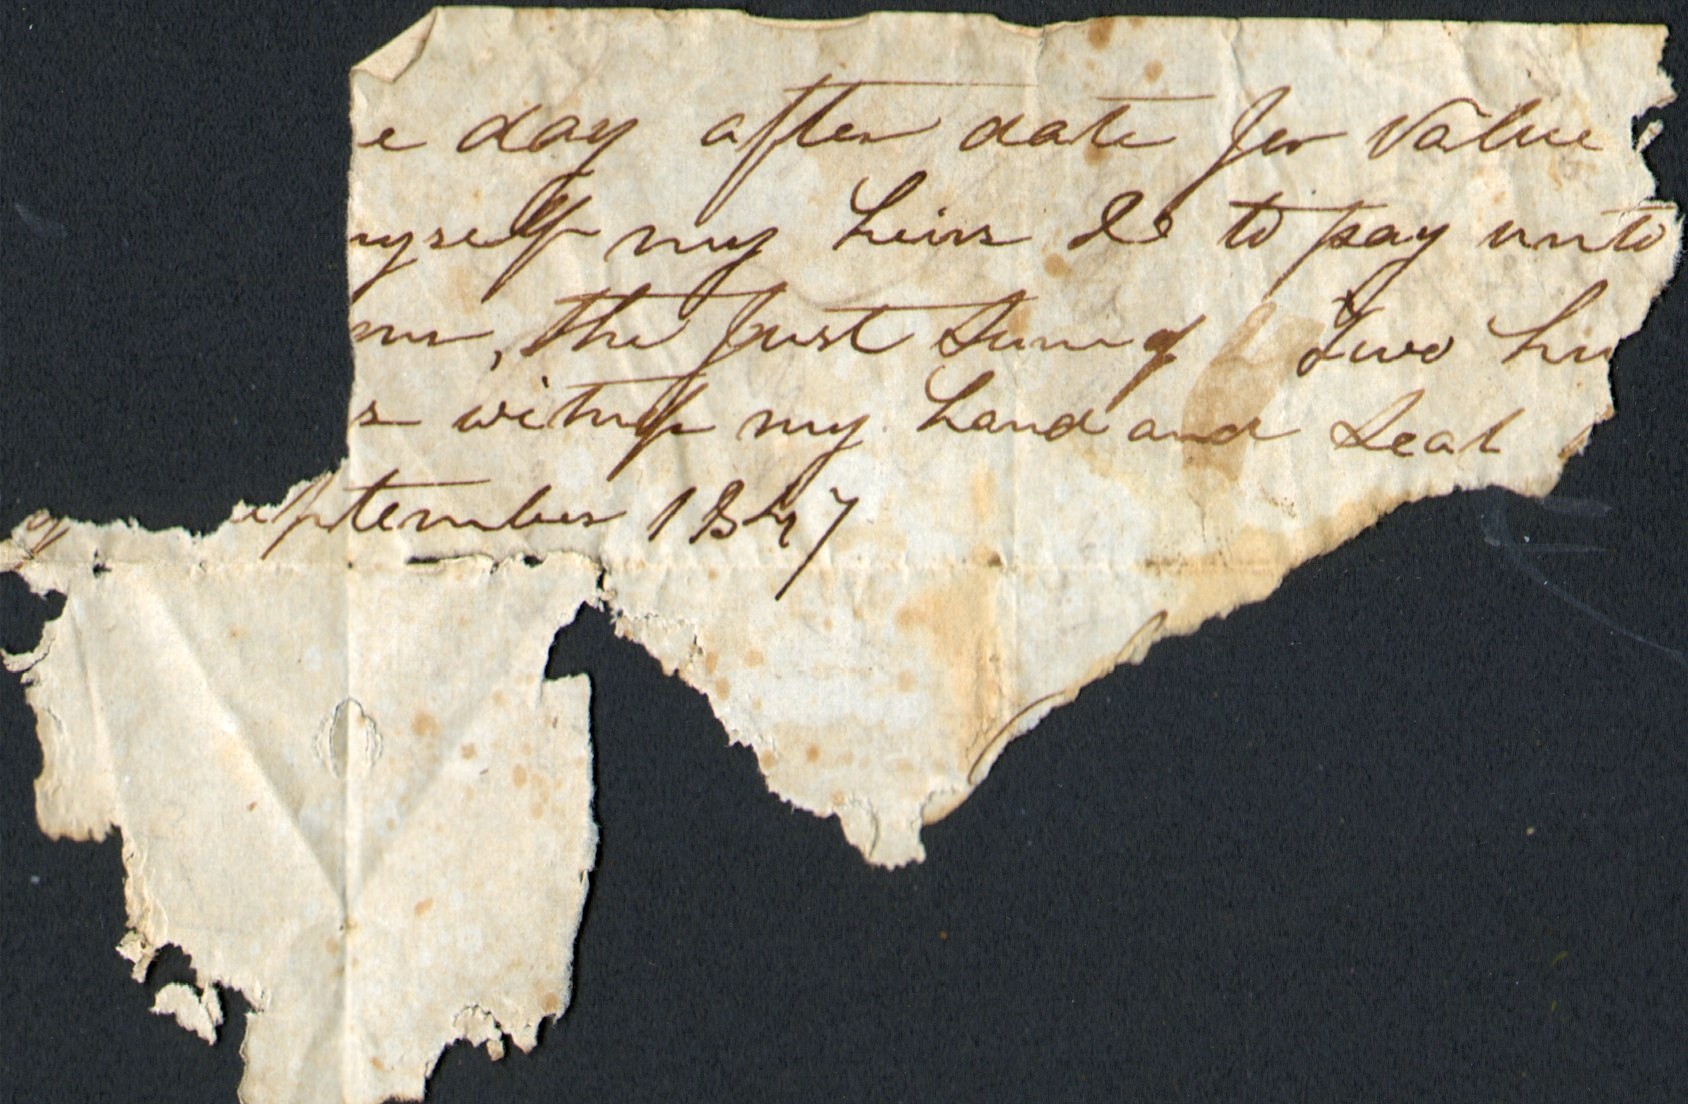 e day after date for Value
yself my heirs &c to pay unto
the Just Sum of Two hu
s witness my hand and Seal
eptember 1847